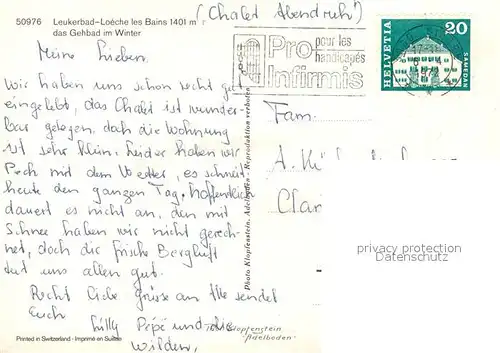 (Chalet Abendruh)
50976 Leukerbad-Loèche les Bains 1401 m
das Gehbad im Winter
HELVETIA 20 SAMEDAN
Pro Infirmis
pour les handicapés
Meine Lieben.
Wir haben uns schon recht gut
eingelebt, das Chalet ist wunder-
bar gelegen, doch die Wohnung
ist sehr klein. Leider haben wir
Pech mit dem Wetter, es schneit
heute den ganzen Tag. Hoffentlich
dauert es nicht an, den mit
Schnee haben wir nicht gerech-
net, doch die frische Bergluft
tut uns allen gut.
Recht liebe Grüsse an Alle sendet
Euch Lilly Pepe und die
wilden.
Fam.
A.
Clar
privacy protection
Datenschutz
Photo Klopfenstein, Adelboden - Reproduktion verboten
Klopfenstein
Adelboden
Printed in Switzerland - Imprimé en Suisse